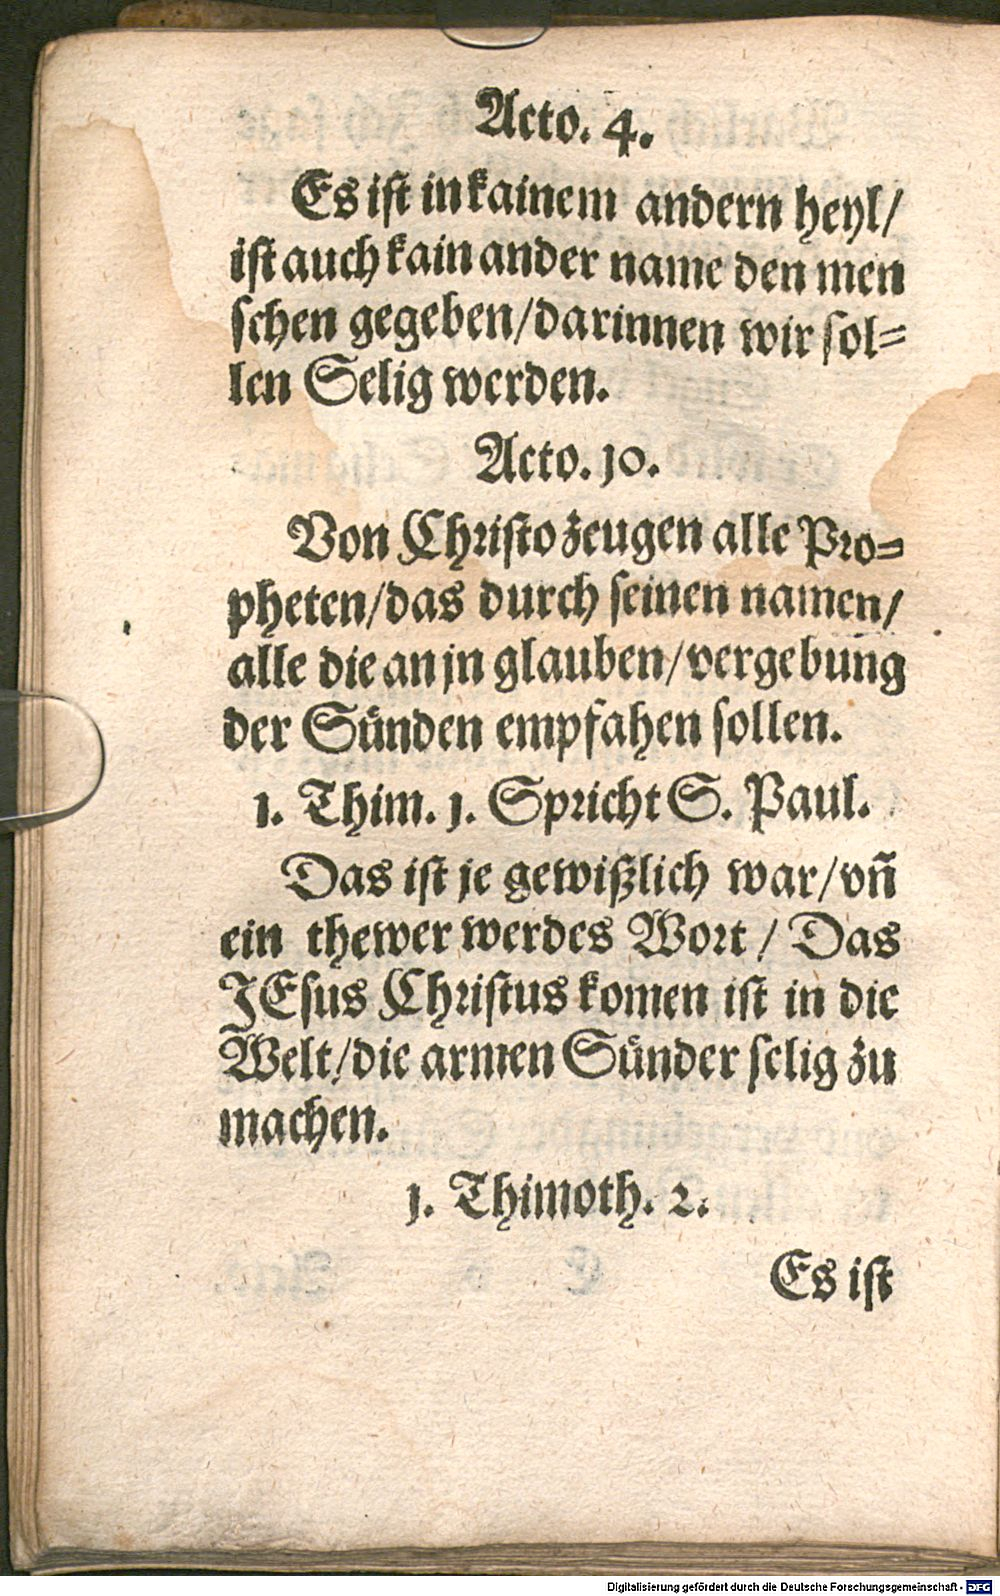 Acto. 4.
Es ist in kainem andern heyl/
ist auch kain ander name den men
schen gegeben/darinnen wir sol=
len Selig werden.
Acto. 10.
Von Christo zeugen alle Pro=
pheten/das durch seinen namen/
alle die an jn glauben/vergebung
der Sünden empfahen sollen.
1. Thim. 1. Spricht S. Paul.
Das ist je gewißlich war/vñ
ein thewer werdes Wort / Das
JEsus Christus komen ist in die
Welt/die armen Sünder selig zu
machen.
1. Thimoth. 2.
Es ist
Digitalisierung gefördert durch die Deutsche Forschungsgemeinschaft - DFG